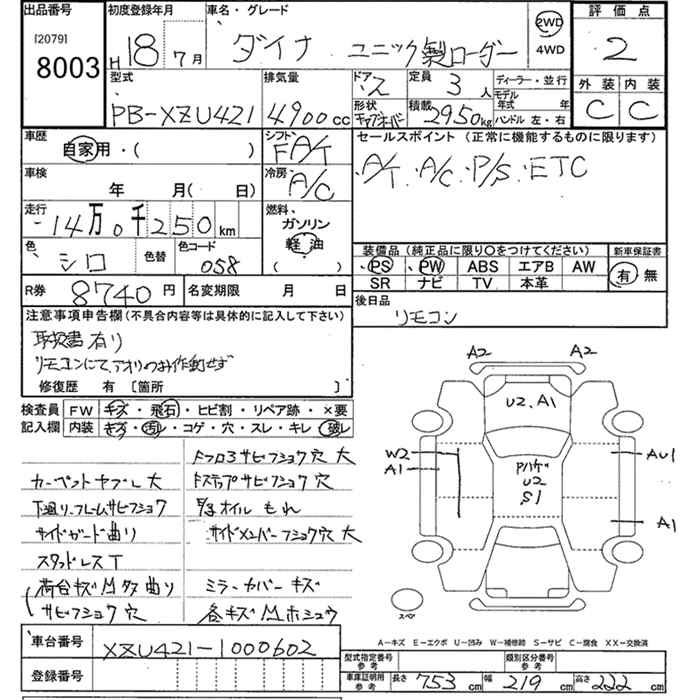 出品番号
[2079]
8003
初度登録年月
H 18年7月
車名・グレード
ダイナ ユニック製ローダー
2WD
4WD
評価点
2
外装 内装
C C
型式
PB-XZU421
排気量
4900cc
ドア 2
形状 キャブオーバー
定員 3人
積載 2950kg
ディーラー・並行
モデル年式 年
ハンドル 左・右
車歴
自家用・( )
シフト
FA/T
車検
年 月( 日)
冷房
A/C
走行
14万0千250km
燃料
ガソリン
軽油
( )
色
シロ
色替
色コード
058
セールスポイント (正常に機能するものに限ります)
・A/T・A/C・P/S・ETC
装備品 (純正品に限り○をつけてください)
PS PW ABS エアB AW
SR ナビ TV 本革
新車保証書
有 無
R券 8740円
名変期限 月 日
後日品
リモコン
注意事項申告欄 (不具合内容等は具体的に記入して下さい)
取扱書有り
リモコンにてアオリのみ作動せず
修復歴 有 [箇所 ]
検査員記入欄
FW キズ・飛石・ヒビ割・リペア跡・×要
内装 キズ・汚レ・コゲ・穴・スレ・キレ・破レ
Fフロアサビフショク穴大
カーペットヤブレ大
Fステップサビフショク穴
下廻り・フレームサビフショク
オイルもれ
サイドガード曲り
サイドメンバーフショク穴大
スタッドレスT
荷台キズM多曲り
ミラーカバーキズ
サビフショク穴
各キズMホシュウ
A2 A2
U2.A1
W2
A1
Pハゲ
U2
S1
AU1
A1
スペ
A-キズ E-エクボ U-凹み W-補修跡 S-サビ C-腐食 XX-交換済
車台番号 XZU421-1000602
登録番号
型式指定番号 参考
類別区分番号 参考
車庫証明用 参考
長さ 753cm 幅 219cm 高さ 222cm